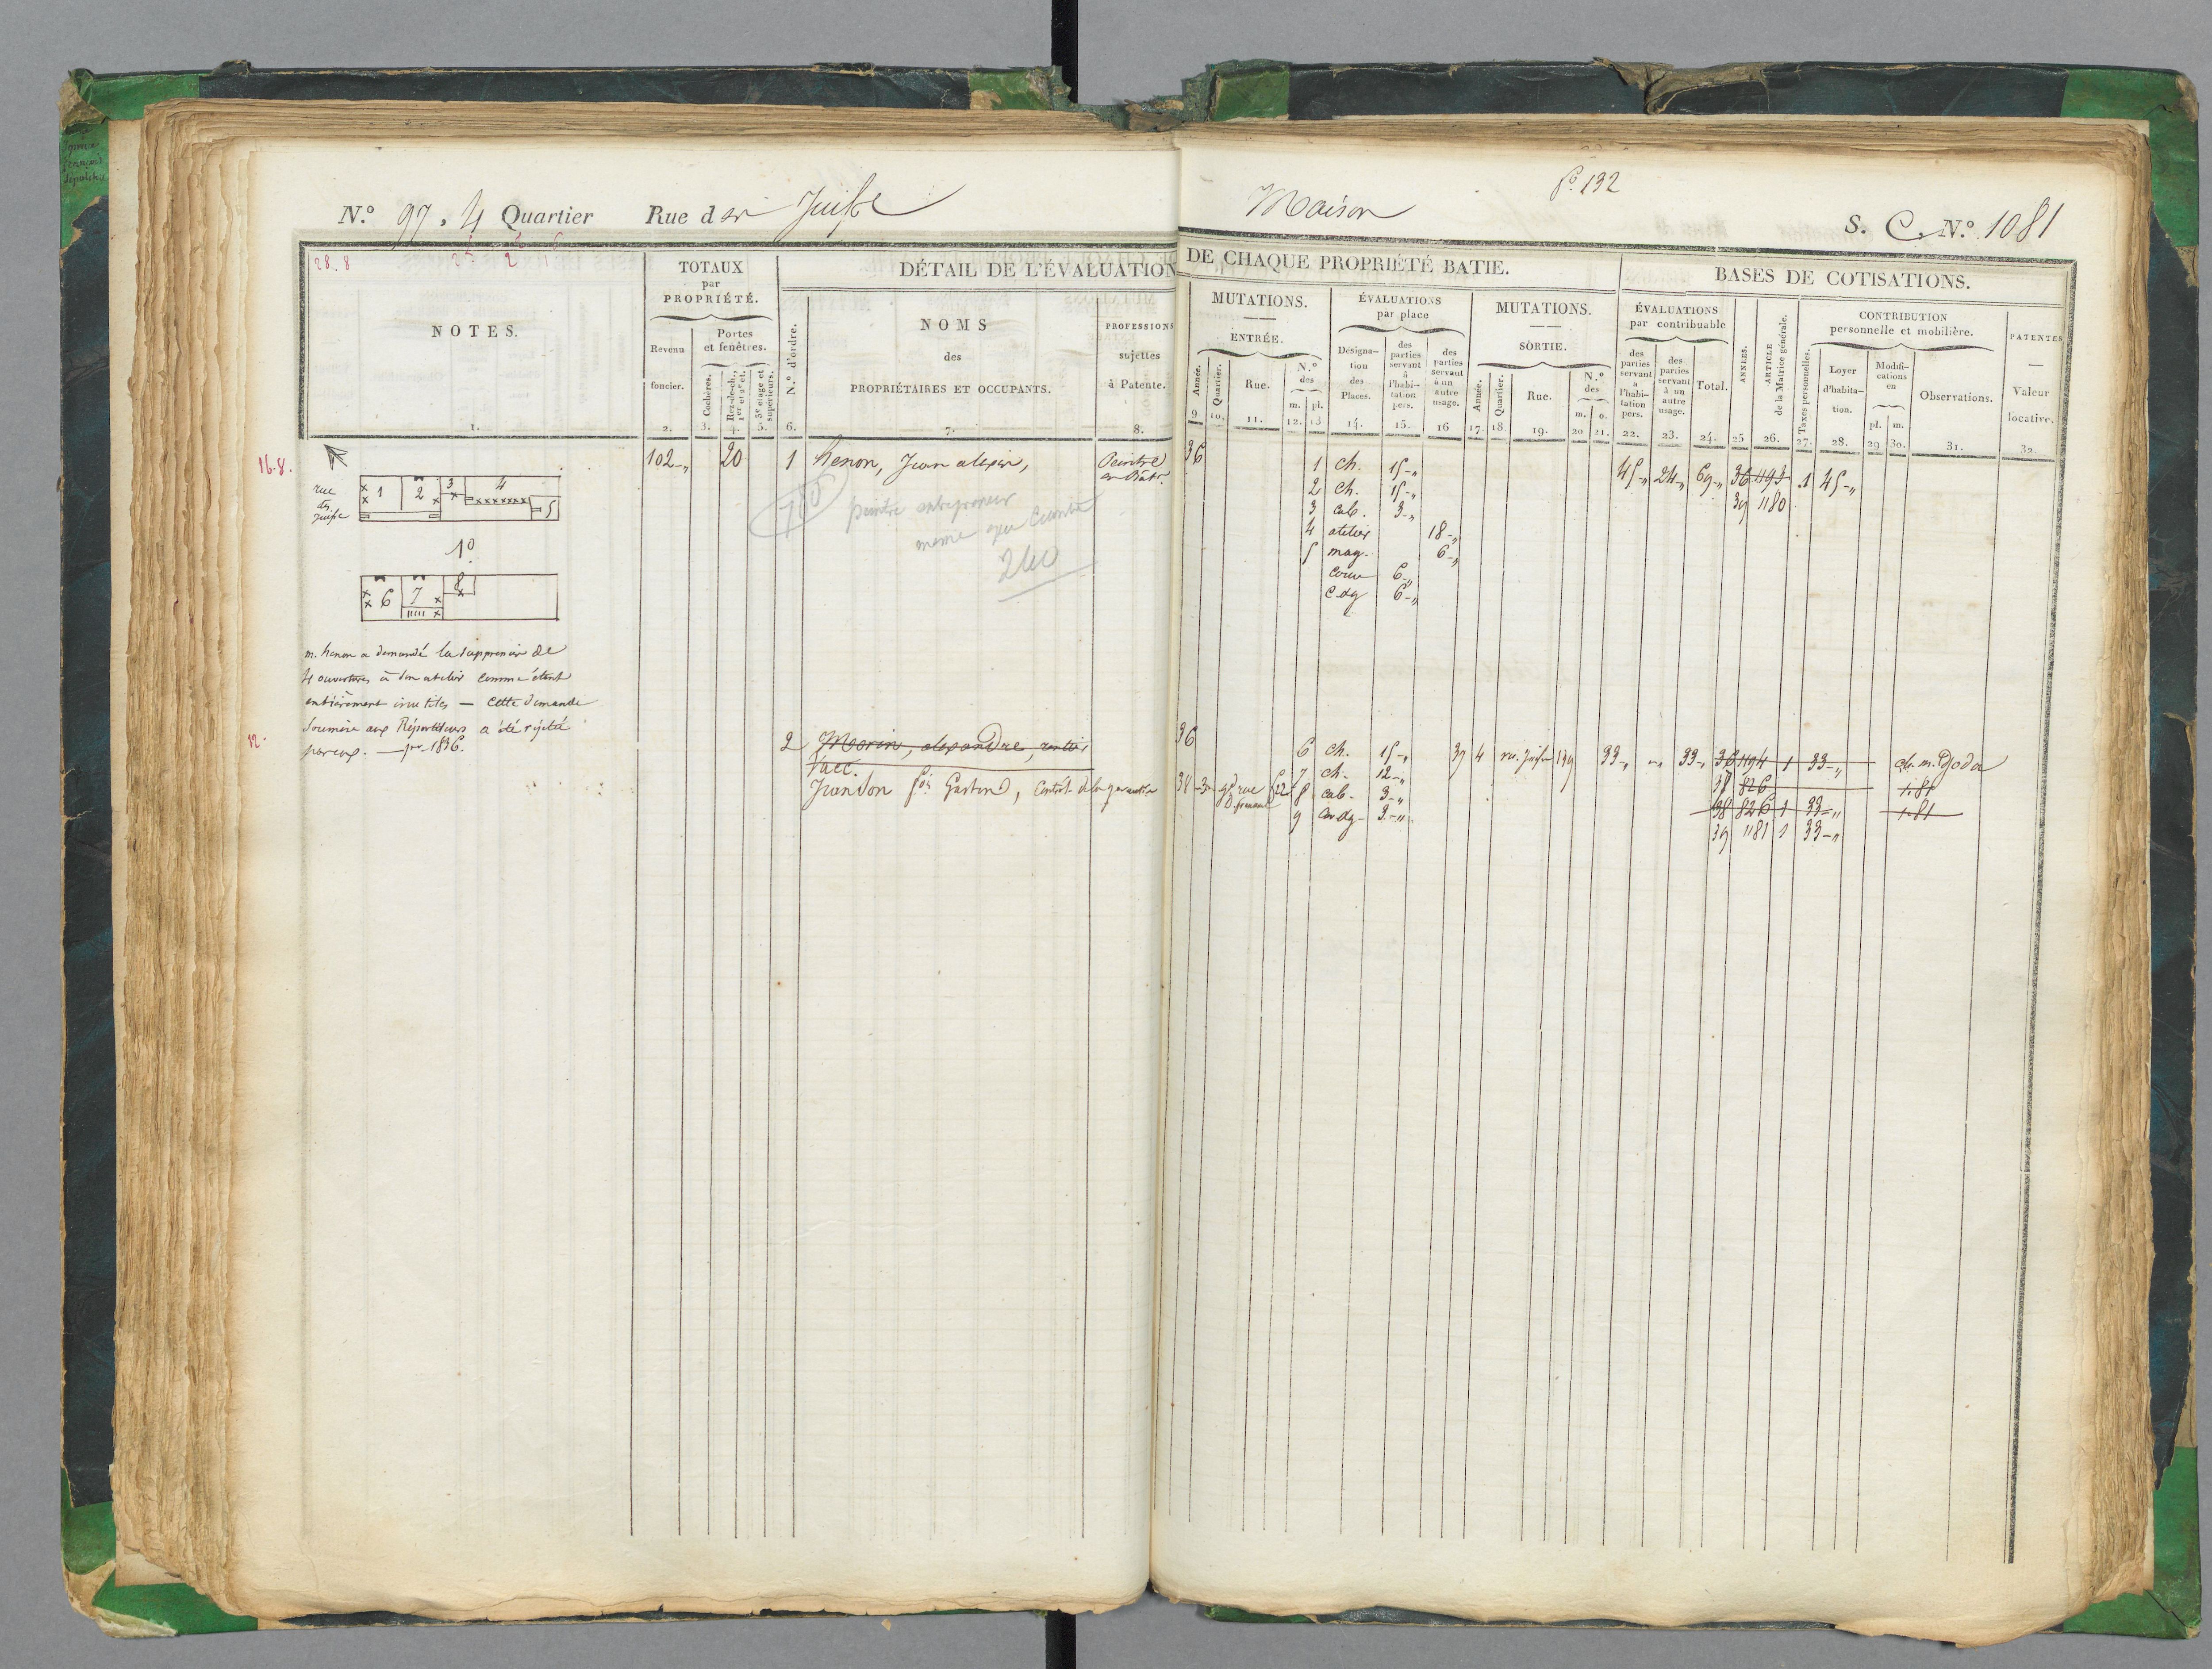 N.º 97. 4 Quartier Rue des Juifs
28. 8
NOTES.
1.
TOTAUX
par
PROPRIÉTÉ.
Revenu
foncier.
2.
Portes
et fenêtres.
Cochères.
3.
Rez-de-ch.,
1er et 2e ét.
4.
3e étage et
supérieurs.
5.
DÉTAIL DE L'ÉVALUATION
N.º d'ordre.
6.
NOMS
des
PROPRIÉTAIRES ET OCCUPANTS.
7.
PROFESSIONS
sujettes
à Patente.
8.
16.8.
rue
des
Juifs
1 2 3 4 5
1º
6 7 8
m. henon a demandé la suppression de
4 ouvertures à son atelier comme étant
entièrement inutiles — cette demande
soumise aux Répartiteurs a été rejetée
par eux. — 1836.
12.
102-„ 20 1 henon, Jean alexis, Peintre
en Bât.
peintre entrepreneur
240
2 Morin, alexandre, rentier
Vacc.
Jurandon
Maison
fº 132
S. C. N.º 1081
DE CHAQUE PROPRIÉTÉ BATIE.
MUTATIONS.
ENTRÉE.
Année.
9
Quartier.
10.
Rue.
11.
N.º
des
m. pl.
12. 13
ÉVALUATIONS
par place
Désigna-
tion
des
Places.
14.
des
parties
servant
à
l'habi-
tation
pers.
15.
des
parties
servant
à un
autre
usage.
16
MUTATIONS.
SORTIE.
Année.
17.
Quartier.
18
Rue.
19.
N.º
des
m. o.
20 21.
BASES DE COTISATIONS.
ÉVALUATIONS
par contribuable
des
parties
servant
à
l'habi-
tation
pers.
22.
des
parties
servant
à un
autre
usage.
23.
Total.
24.
ANNÉES.
25
ARTICLE
de la Matrice générale.
26.
CONTRIBUTION
personnelle et mobilière.
Taxes personnelles.
27.
Loyer
d'habita-
tion.
28.
Modifi-
cations
en
pl. m.
29 30.
Observations.
31.
PATENTES
Valeur
locative.
32.
36 1 ch. 15-„ 45-„ 24-„ 69-„ 36 1193 1 45-„
2 ch. 15-„ 39 1180
3 cab. 3-„
4 atelier 18-„
5 mag. 6-„
cour 6-„
c.dg 6-„
36 6 ch. 15-„ 39 4 r. Juifs 139 33-„ „ 33-„ 36 1194 1 33-„
7 ch. 12-„ 37 826 1.81
38 3 gde rue 8 cab. 3-„ 38 826 1 33-„ 1.81
9 3-„ 39 1181 1 33-„